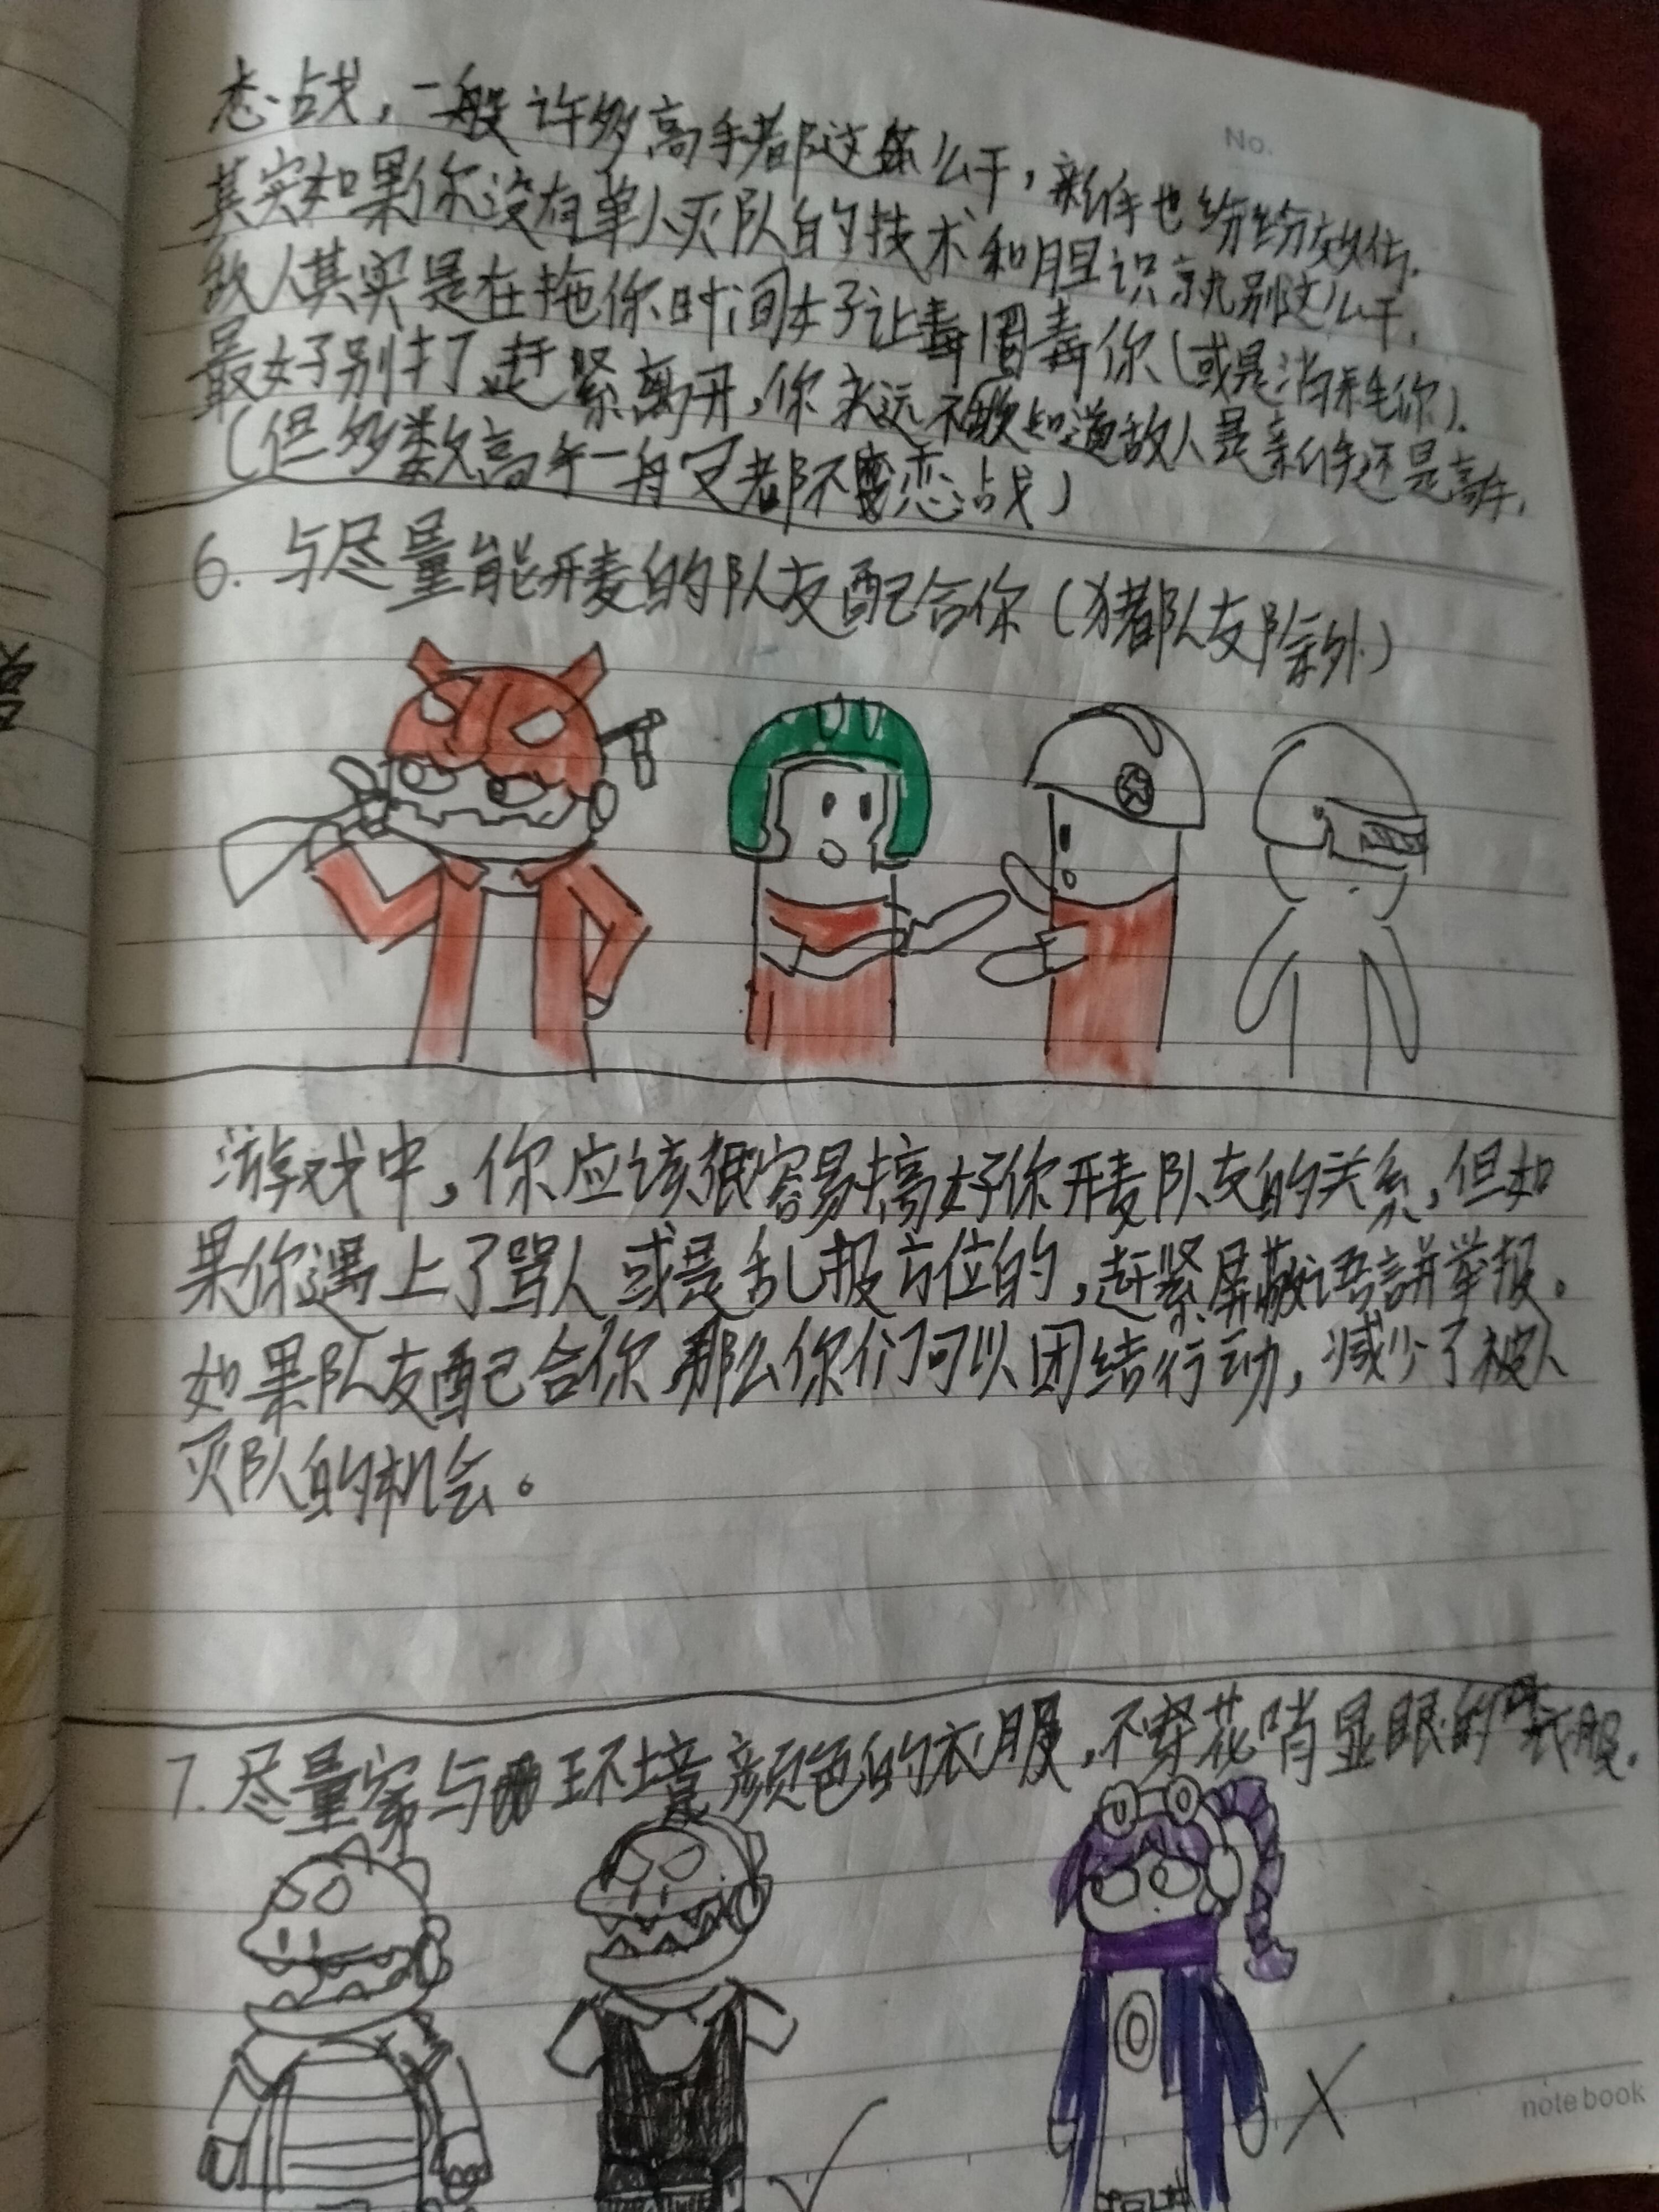 No.
恋战，一般许多高手都这么干，新手也纷纷效仿.
其实如果你没有单人灭队的技术和胆识就别这么干，
敌人其实是在拖你时间好让毒圈毒你（或是消耗你）.
最好别打了赶紧离开，你永远不知道敌人是新手还是高手，
（但多数高手一般都不恋战）
6. 与尽量能开麦的队友配合你（猪队友除外）
游戏中，你应该很容易搞好你开麦队友的关系，但如
果你遇上了骂人或是乱报方位的，赶紧屏蔽语音并举报。
如果队友配合你 那么你们可以团结行动，减少了被人
灭队的机会。
7. 尽量穿与环境颜色的衣服，不穿花哨显眼的衣服.
notebook